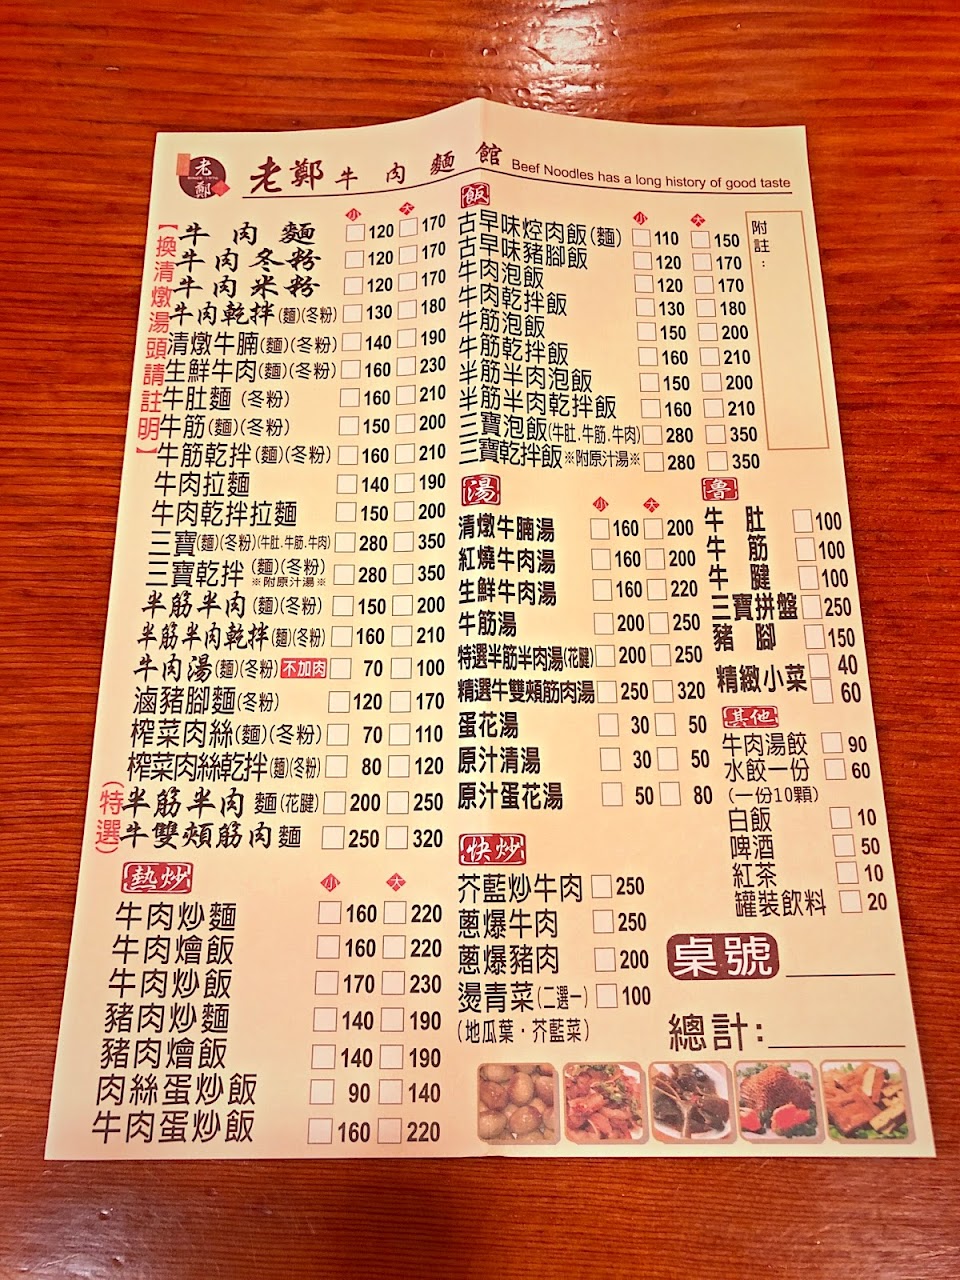 老鄭
SINCE 1978
老鄭牛肉麵館 Beef Noodles has a long history of good taste
【換清燉湯頭請註明】
小 大
牛肉麵 120 170
牛肉冬粉 120 170
牛肉米粉 120 170
牛肉乾拌(麵)(冬粉) 130 180
清燉牛腩(麵)(冬粉) 140 190
生鮮牛肉(麵)(冬粉) 160 230
牛肚麵(冬粉) 160 210
牛筋(麵)(冬粉) 150 200
牛筋乾拌(麵)(冬粉) 160 210
牛肉拉麵 140 190
牛肉乾拌拉麵 150 200
三寶(麵)(冬粉)(牛肚.牛筋.牛肉) 280 350
三寶乾拌(麵)(冬粉) 280 350
※附原汁湯※
半筋半肉(麵)(冬粉) 150 200
半筋半肉乾拌(麵)(冬粉) 160 210
牛肉湯(麵)(冬粉)不加肉 70 100
滷豬腳麵(冬粉) 120 170
榨菜肉絲(麵)(冬粉) 70 110
榨菜肉絲乾拌(麵)(冬粉) 80 120
(特選)
半筋半肉麵(花腱) 200 250
牛雙頰筋肉麵 250 320
熱炒 小 大
牛肉炒麵 160 220
牛肉燴飯 160 220
牛肉炒飯 170 230
豬肉炒麵 140 190
豬肉燴飯 140 190
肉絲蛋炒飯 90 140
牛肉蛋炒飯 160 220
飯
小 大
古早味焢肉飯(麵) 110 150
古早味豬腳飯 120 170
牛肉泡飯 120 170
牛肉乾拌飯 130 180
牛筋泡飯 150 200
牛筋乾拌飯 160 210
半筋半肉泡飯 150 200
半筋半肉乾拌飯 160 210
三寶泡飯(牛肚.牛筋.牛肉) 280 350
三寶乾拌飯※附原汁湯※ 280 350
附註:
湯 小 大
清燉牛腩湯 160 200
紅燒牛肉湯 160 200
生鮮牛肉湯 160 220
牛筋湯 200 250
特選半筋半肉湯(花腱) 200 250
精選牛雙頰筋肉湯 250 320
蛋花湯 30 50
原汁清湯 30 50
原汁蛋花湯 50 80
快炒
芥藍炒牛肉 250
蔥爆牛肉 250
蔥爆豬肉 200
燙青菜(二選一) 100
(地瓜葉·芥藍菜)
魯
牛肚 100
牛筋 100
牛腱 100
三寶拼盤 250
豬腳 150
精緻小菜 40
60
其他
牛肉湯餃 90
水餃一份 60
(一份10顆)
白飯 10
啤酒 50
紅茶 10
罐裝飲料 20
桌號
總計: